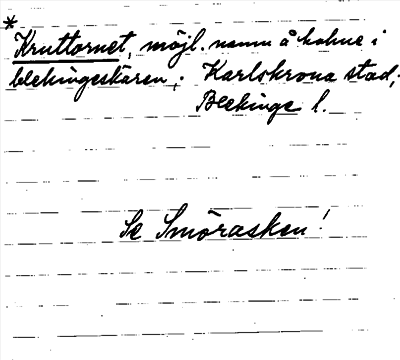 * Kruttornet, möjl. namn å holme i
blekingeskären; Karlskrona stad,
Blekinge l.
Se Smörasken!